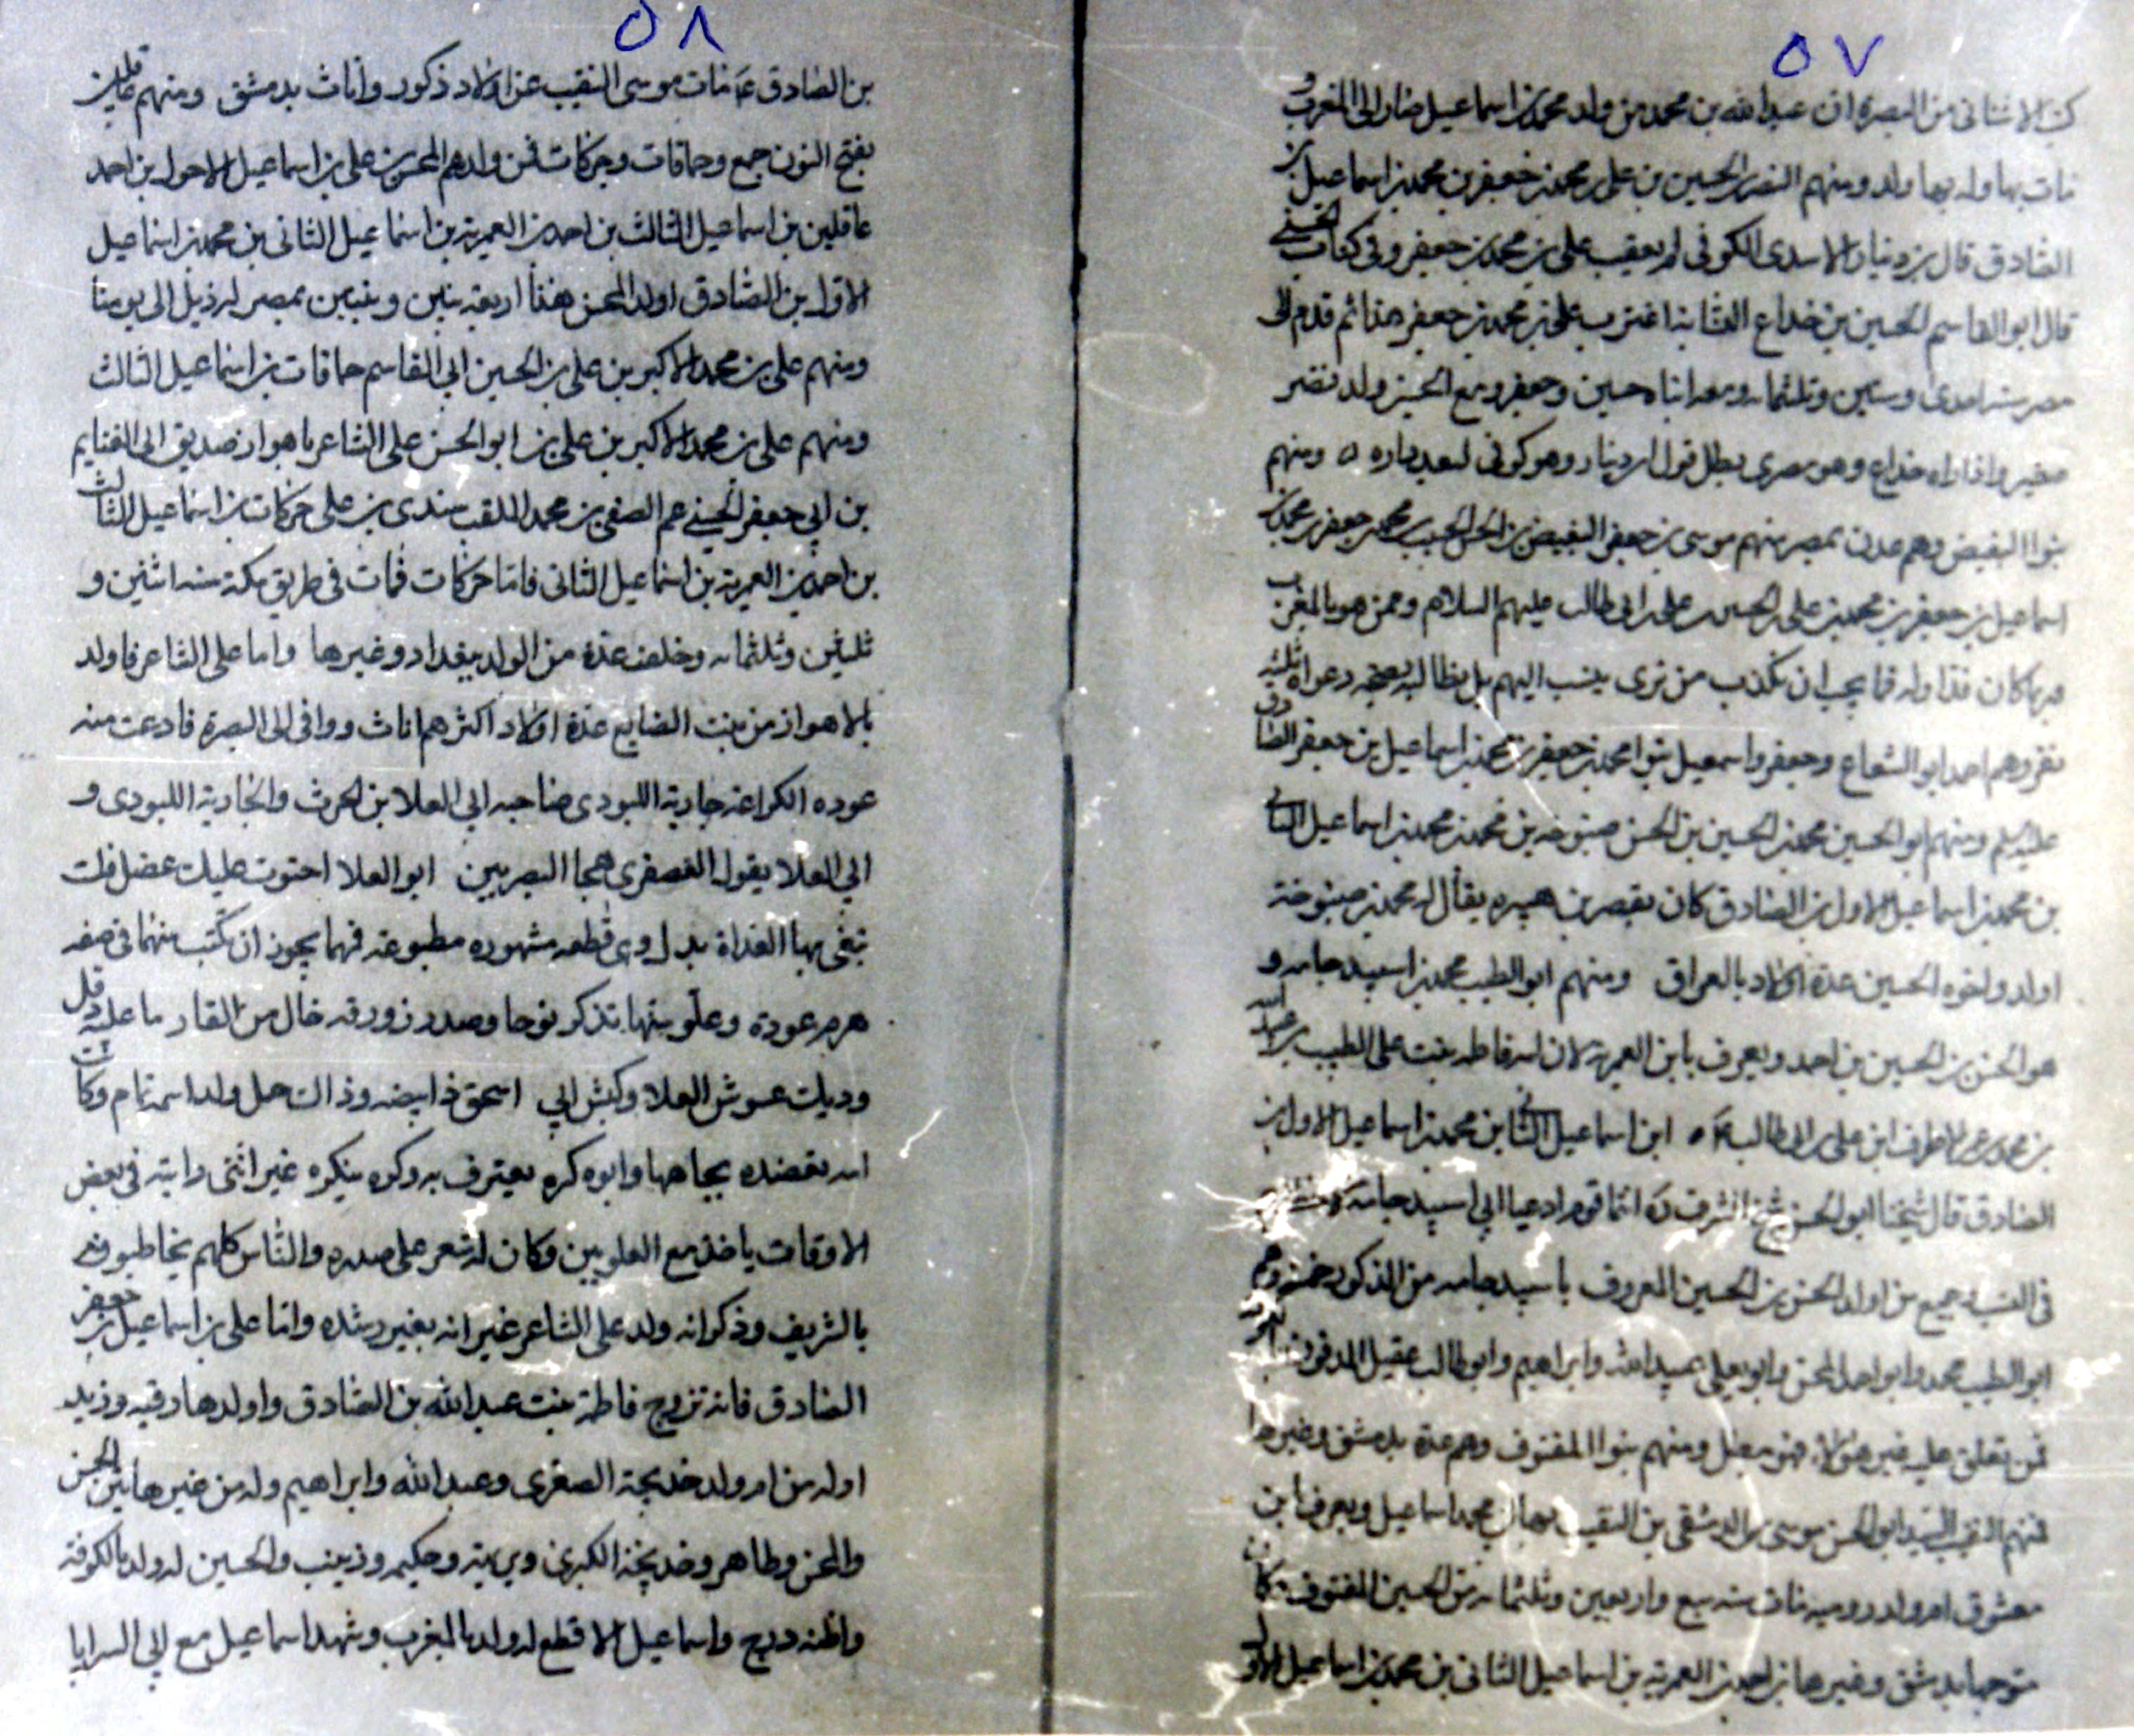 ٥٧
الاشنانی من البصرة ان عبدالله بن محمد من ولد محمد بن اسماعیل صار الی المغرب و
مات بها وله بها ولد ومنهم الحسین بن علی بن محمد بن جعفر بن محمد بن اسماعیل بن
الصادق قال بن دینار الاسدی الکوفی لم یعقب علی بن محمد بن جعفر وفی کتاب
قال ابو القاسم الحسین بن خداع النسابة اغترب علی بن محمد بن جعفر هذا ثم قدم الی
مصر سنه احدی وستین وثلثمائه ومعه ابناه حسین وجعفر ومع الحسین ولد
صغیر واذا راه خداع وهو مصری بطل قول ابن دینار وهو کوفی لبعد دیاره ٥ ومنهم
بنوا البغیض وهم عدن بمصر منهم موسی بن جعفر البغیض بن الحسن الحبیب بن محمد بن جعفر بن محمد بن
اسماعیل بن جعفر بن محمد بن علی بن الحسین بن علی بن ابی طالب علیهم السلام وممن هو بالمغرب
فما یجب ان نکذب من نری ینسب الیهم بل نطالبه بصحة دعواه ثلثة
نفر وهم احمد ابو الشعاع وجعفر واسمعیل بنوا محمد بن جعفر بن محمد بن اسماعیل بن جعفر الصادق
علیه السلم ومنهم ابو الحسین محمد بن الحسین بن الحسن صبنوخه بن محمد بن محمد بن اسماعیل الثانی
بن محمد بن اسماعیل الاول بن الصادق کان بقصر بن هبیره یقال له محمد بن صبنوخة
اولد ولاخوه الحسین عدة اولاد بالعراق ومنهم ابو الطیب محمد بن اسبید جامه و
هو الحسن بن الحسین بن احمد ویعرف بابن العمریة لان امه فاطمه بنت علی الطبیب بن عبدالله
بن محمد بن عمر الاطرف ابن علی بن ابی طالب ابن اسماعیل الثانی بن محمد بن اسماعیل الاول بن
الصادق قال شیخنا ابو الحسن شیخ الشرف انما قوم ادعیا الی اسبید جامه
فی النسب جمیع من اولد الحسن بن الحسین المعروف باسبید جامه من الذکور خمسة وهم
ابو الطیب محمد وابو احمد المحسن وابو یعلی عبیدالله وابراهیم وابو طالب عقیل
فمن تعلق علیه غیر هؤلاء فهو مبطل ومنهم بنوا المفتوف وهم عدة بدمشق وغیرها
فمنهم النقیب السید ابو الحسن موسی بن الدمشقی بن النقیب بها محمد اسماعیل ویعرف بابن
معشوق ام ولد رومیه مات سنه سبع واربعین وثلثمائه بن الحسین المفتوف کان
متوجها بدمشق وغیرها بن احمد بن العمریة بن اسماعیل الثانی بن محمد بن اسماعیل الاول
٥٨
بن الصادق ع مات موسی النقیب عن اولاد ذکور واناث بدمشق ومنهم عاقلین
بفتح النون جمع وحماقات وحرکات فمن ولدهم المحسن بن علی بن اسماعیل الاحول بن احمد
عاقلین بن اسماعیل الثالث بن احمد بن العمریة بن اسماعیل الثانی بن محمد بن اسماعیل
الاول بن الصادق اولد المحسن هذا اربعة بنین وبنتین بمصر لهم ذیل الی یومنا
ومنهم علی بن محمد الاکبر بن علی بن الحسین ابی القاسم حماقات بن اسماعیل الثالث
ومنهم علی بن محمد الاکبر بن علی بن ابو الحسن علی الشاعر باهواز صدیق ابی الغنایم
بن ابی جعفر الحسینی عم الصفی بن محمد الملقب بندی بن علی حرکات بن اسماعیل الثالث
بن احمد بن العمریة بن اسماعیل الثانی فاما حرکات فمات فی طریق مکة سنه اثنین و
ثلثین وثلثمائه وخلف عدة من الولد ببغداد وغیرها واما علی الشاعر فاولد
بالاهواز من بنت الصایع عدة اولاد اکثرهم اناث ووافی الی البصرة فادعت منه
عوده الکراعة جاریة اللبودی صاحبه ابی العلا بن الحرث والجاریة اللبودی و
ابی العلا یقول العصفری هجا البصریین ابو العلا احتوت علیک
تبغی بها الغداة بدل وی قطعه مشهوره مطبوعة فهما یجوز ان کتب منهما فی صفه
هرم عودة وعلو سنها تذکر نوحا وصدر زورقه خال من القار ما علیه دقل
ودیلت عسوش العلا وکبش ابی اسحق وذالت حمل ولدا سمته تام وکانت
امه تعضده بجاهها وابوه کره یعترف به وکره ینکره غیر اننی رایته فی بعض
الاوقات یاخذ مع العلویین وکان له شعر علی صدره والناس کلهم یخاطبونه
بالشریف وذکر انه ولد علی الشاعر غیر انه بغیر رشده واما علی بن اسماعیل بن جعفر
الصادق فانه تزوج فاطمة بنت عبدالله بن الصادق واولدها رقیه وزید
اوله من ام ولد خدیجة الصغری وعبدالله وابراهیم وله من غیرها بنین الحسن
والمحسن وطاهر وخدیجة الکبری وبریة وحکیمه وزینب والحسین له ولد بالکوفة
واظنه درج واسماعیل الاقطع له ولد بالمغرب وشهد اسماعیل مع ابی السرایا